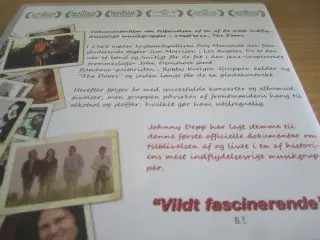 Dokumentarfilm om tilblivelsen af en af de mest indfly-
delsesrige musikgrupper i 1960'erne, The Doors.
I 1965 møder keyboardspilleren Ray Manzarek den
digte Jim Morrison i Los Angeles. De to dan-
ner et band og hurtigt får de fat i den jazz-inspirerede
trommeslager John Densmore samt
flamenco-guitaristen Robby Krieger. Gruppen kalder de
"The Doors" og inden længe får de en pladekontrakt.
Herefter følger år med succesfulde koncerter og albumud-
givelser, men gruppen påvirkes af frontmandens hang til
alkohol og stoffer, hvilket gør ham utilregnelig.
Johnny Depp har lagt stemme til
denne første officielle dokumentar om
tilblivelsen af og livet i en af historiens
mest indflydelsesrige musikgrup-
per.
"Vildt fascinerende"
B.T.